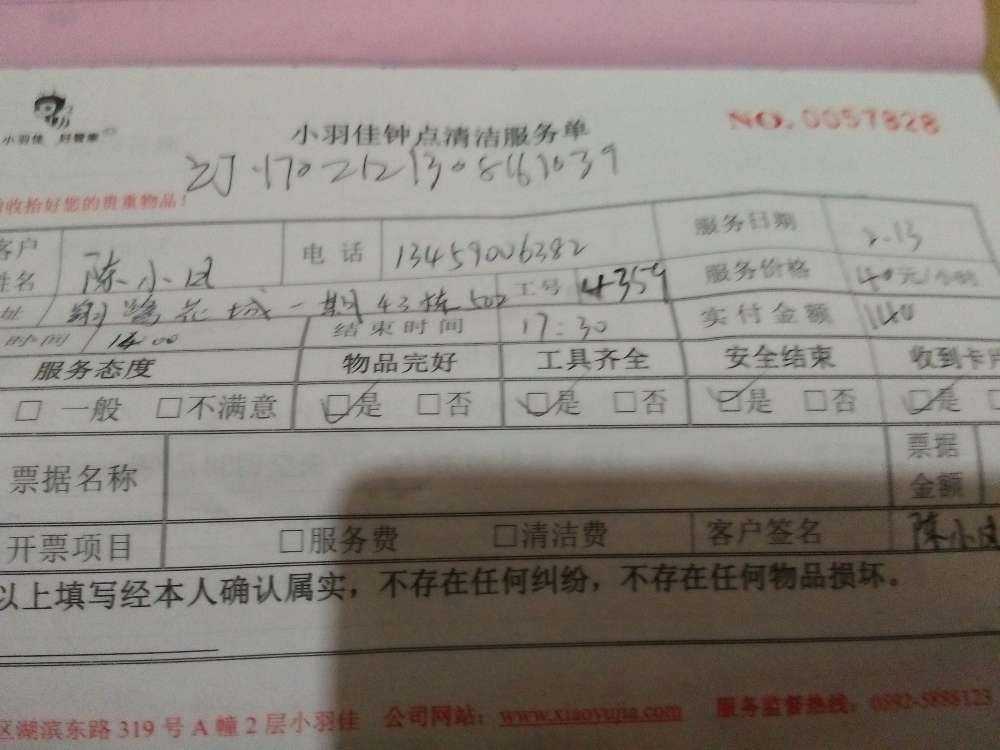 小羽佳 好管家
小羽佳钟点清洁服务单
NO. 0057828
收拾好您的贵重物品!
客户姓名 陈小凤 电话 13459006382 服务日期 2.13
址 翔鹭花城一期43栋502 工号 4359 服务价格 40元/小时
时间 14:00 结束时间 17:30 实付金额 140
服务态度 物品完好 工具齐全 安全结束 收到卡
□ 一般 □不满意 ☑是 □否 ☑是 □否 ☑是 □否 ☑是
票据名称 票据金额
开票项目 □服务费 □清洁费 客户签名 陈小凤
以上填写经本人确认属实，不存在任何纠纷，不存在任何物品损坏。
区湖滨东路 319 号 A 幢 2 层小羽佳 公司网站：www.xiaoyujia.com 服务监督热线：0592-5888123